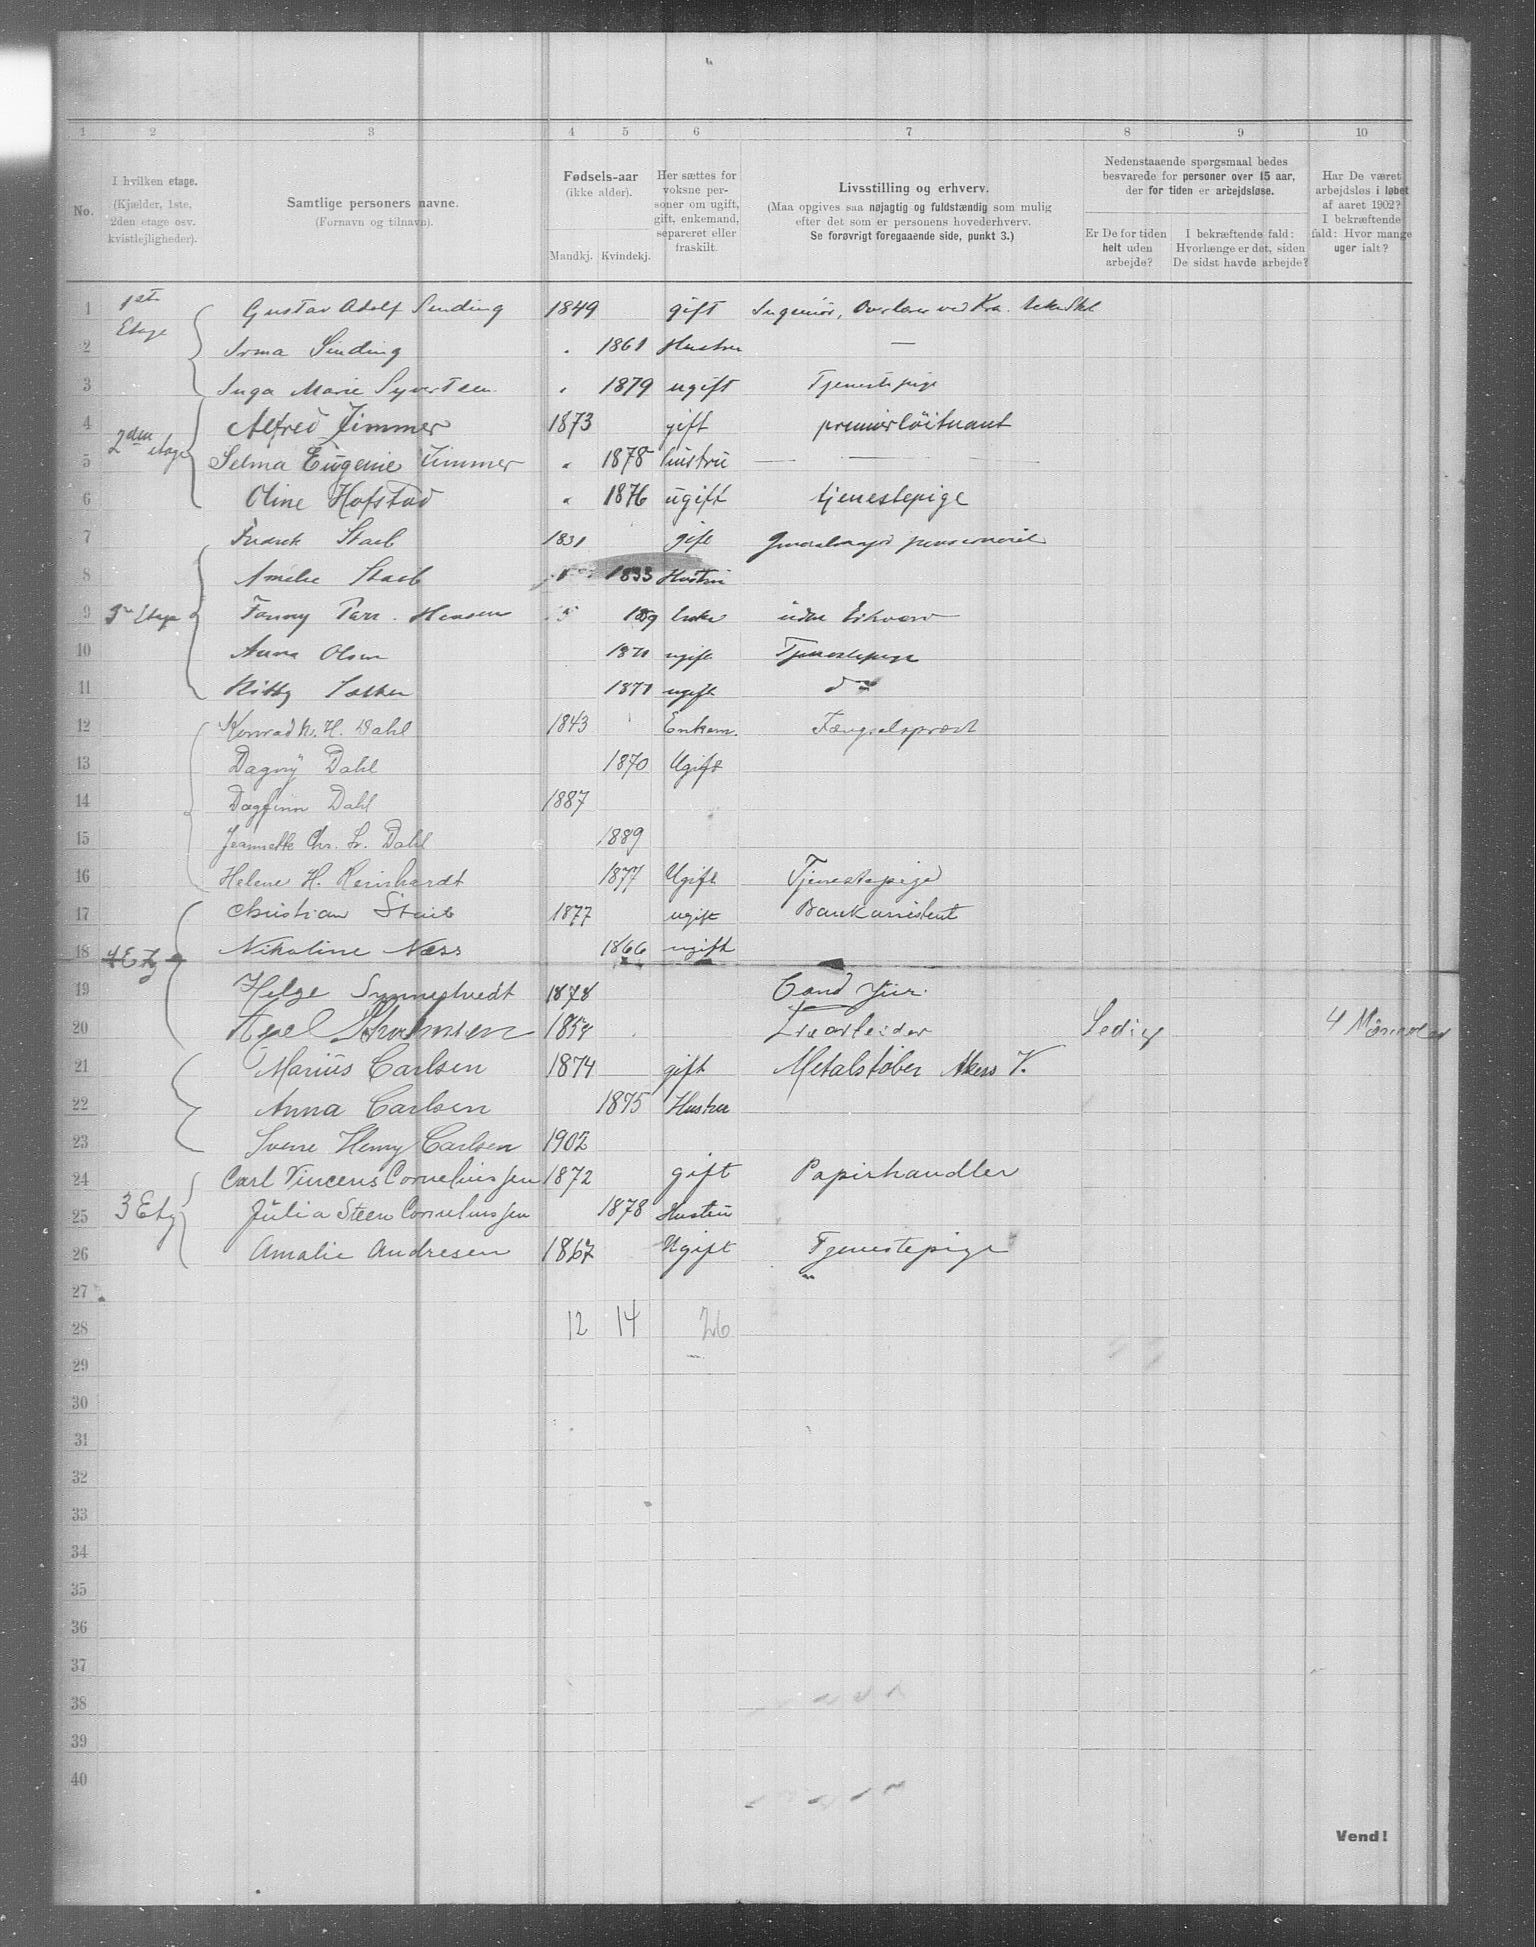 1 2 3 4 5 6 7 8 9 10
No.
I hvilken etage.
(Kjælder, 1ste,
2den etage osv.
kvistlejligheder).
Samtlige personers navne.
(Fornavn og tilnavn).
Fødsels-aar
(ikke alder).
Mandkj. Kvindekj.
Her sættes for
voksne per-
soner om ugift,
gift, enkemand,
separeret eller
fraskilt.
Livsstilling og erhverv.
(Maa opgives saa nøjagtig og fuldstændig som mulig
efter det som er personens hovederhverv.
Se forøvrigt foregaaende side, punkt 3.)
Nedenstaaende spørgsmaal bedes
besvarede for personer over 15 aar,
der for tiden er arbejdsløse.
Er De for tiden
helt uden
arbejde?
I bekræftende fald:
Hvorlænge er det, siden
De sidst havde arbejde?
Har De været
arbejdsløs i løbet
af aaret 1902?
I bekræftende
fald: Hvor mange
uger ialt?
1 1ste Etage Gustav Adolf Sinding 1849 gift Ingeniør, Overlærer ved Kra.
2 Irma Sinding " 1861 Hustru —
3 Inga Marie Syvertsen " 1879 ugift Tjenestepige
4 2den etage Alfred Zimmer 1873 gift premierløitnant
5 Selma Eugenie Zimmer " 1878 hustru — — —
6 Oline Hofstad " 1876 ugift tjenestepige
7 Fredrik Staib 1831 gift Generalmajor pensioneret
8 Amelie Staib 1833 Hustru
9 3die Etage Fanny Hansen enke uden Erhverv
10 Anna Olsen 1870 ugift Tjenestepige
11 1871 ugift do
12 Konrad N. H. Dahl 1843 Enkem. Fængselsprest
13 Dagny Dahl 1870 Ugift
14 Dagfinn Dahl 1887
15 Jeannette Chr. L. Dahl 1889
16 Helene H. Reinhardt 1877 Ugift Tjenestepige
17 Christian Staib 1877 ugift Bankassistent
18 4 Etg Nikoline Næss 1866 ugift
19 Helge Synnestvedt 1878 Cand jur.
20 Axel 1854 Ledig 4
21 Marius Carlsen 1874 gift Metalstøber Akers V.
22 Anna Carlsen 1875 Hustru
23 Sverre Henry Carlsen 1902
24 Carl Vincens Corneliussen 1872 gift Papirhandler
25 3 Etg Julia Steen Corneliussen 1878 Hustru
26 Amalie Andresen 1867 Ugift Tjenestepige
27
28 12 14 26
29
30
31
32
33
34
35
36
37
38
39
40
Vend!